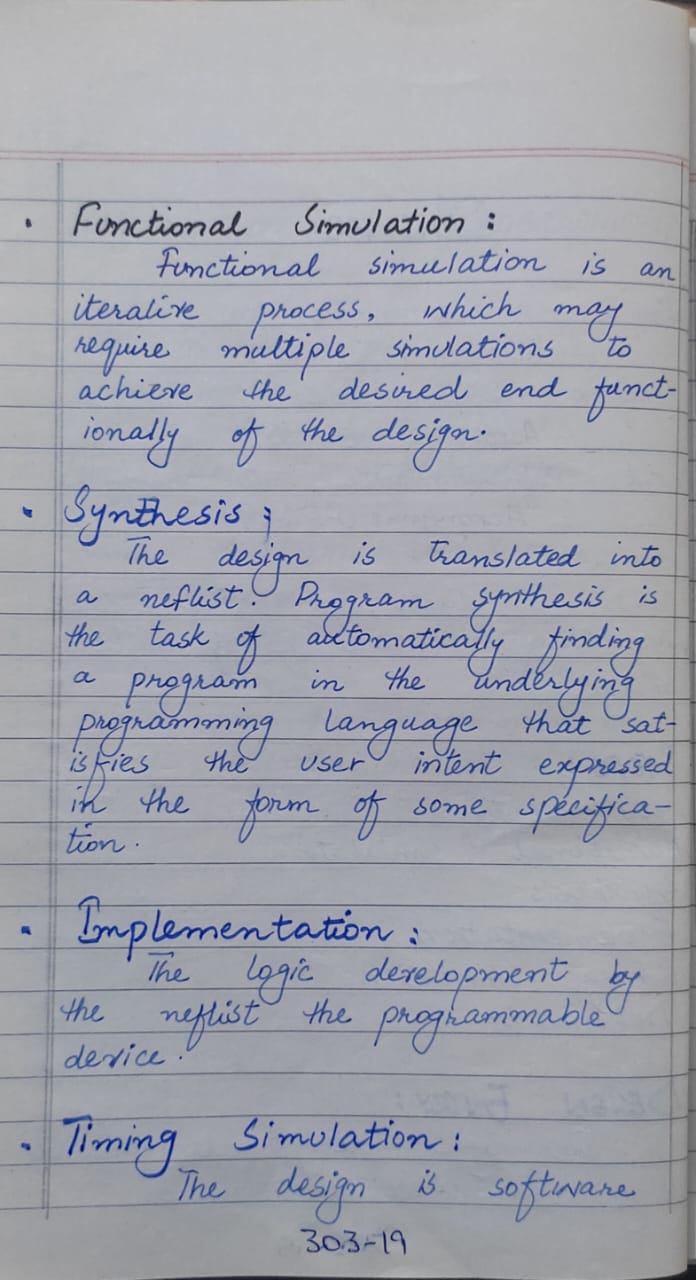 • Functional Simulation :
Functional simulation is an
iterative process, which may
require multiple simulations to
achieve the desired end funct-
ionally of the design.
• Synthesis :
The design is translated into
a neflist. Program synthesis is
the task of automatically finding
a program in the underlying
programming language that sat-
isfies the user intent expressed
in the form of some specifica-
tion.
• Implementation :
The logic development by
the neflist the programmable
device.
• Timing Simulation :
The design is software
303-19